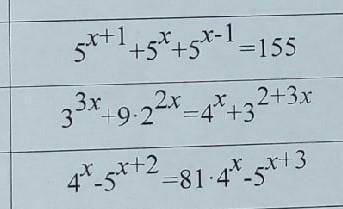 5^{x+1}+5^x+5^{x-1}=155
3^{3x}+9·2^{2x}=4^x+3^{2+3x}
4^x-5^{x+2}=81·4^x-5^{x+3}